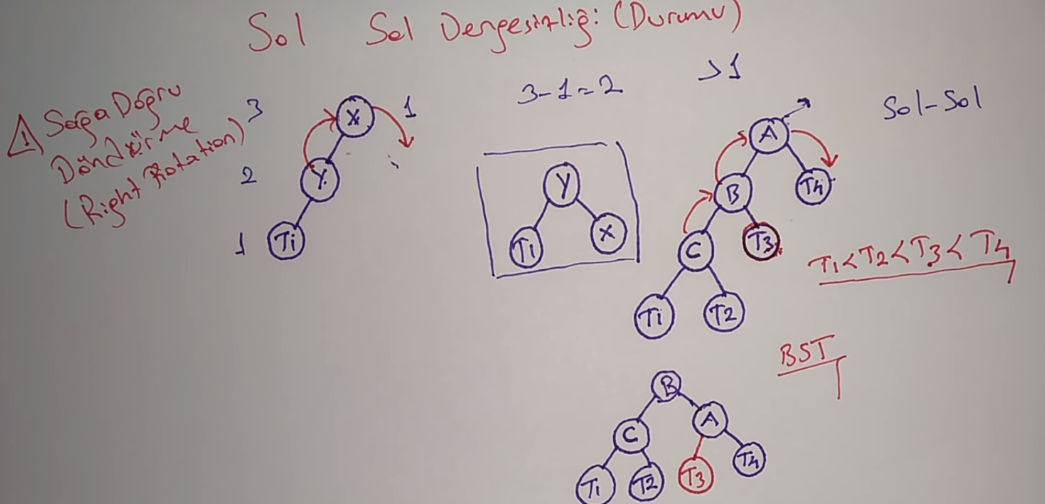 Sol Sol Dengesizliği: (Durumu)
⚠ Sağa Doğru
Döndürme
(Right Rotation)
3
2
1
X
1
Y
T1
3-1=2
>1
Y
T1
X
Sol-Sol
A
B
T4
C
T3
T1
T2
T1<T2<T3<T4
BST
B
C
A
T1
T2
T3
T4